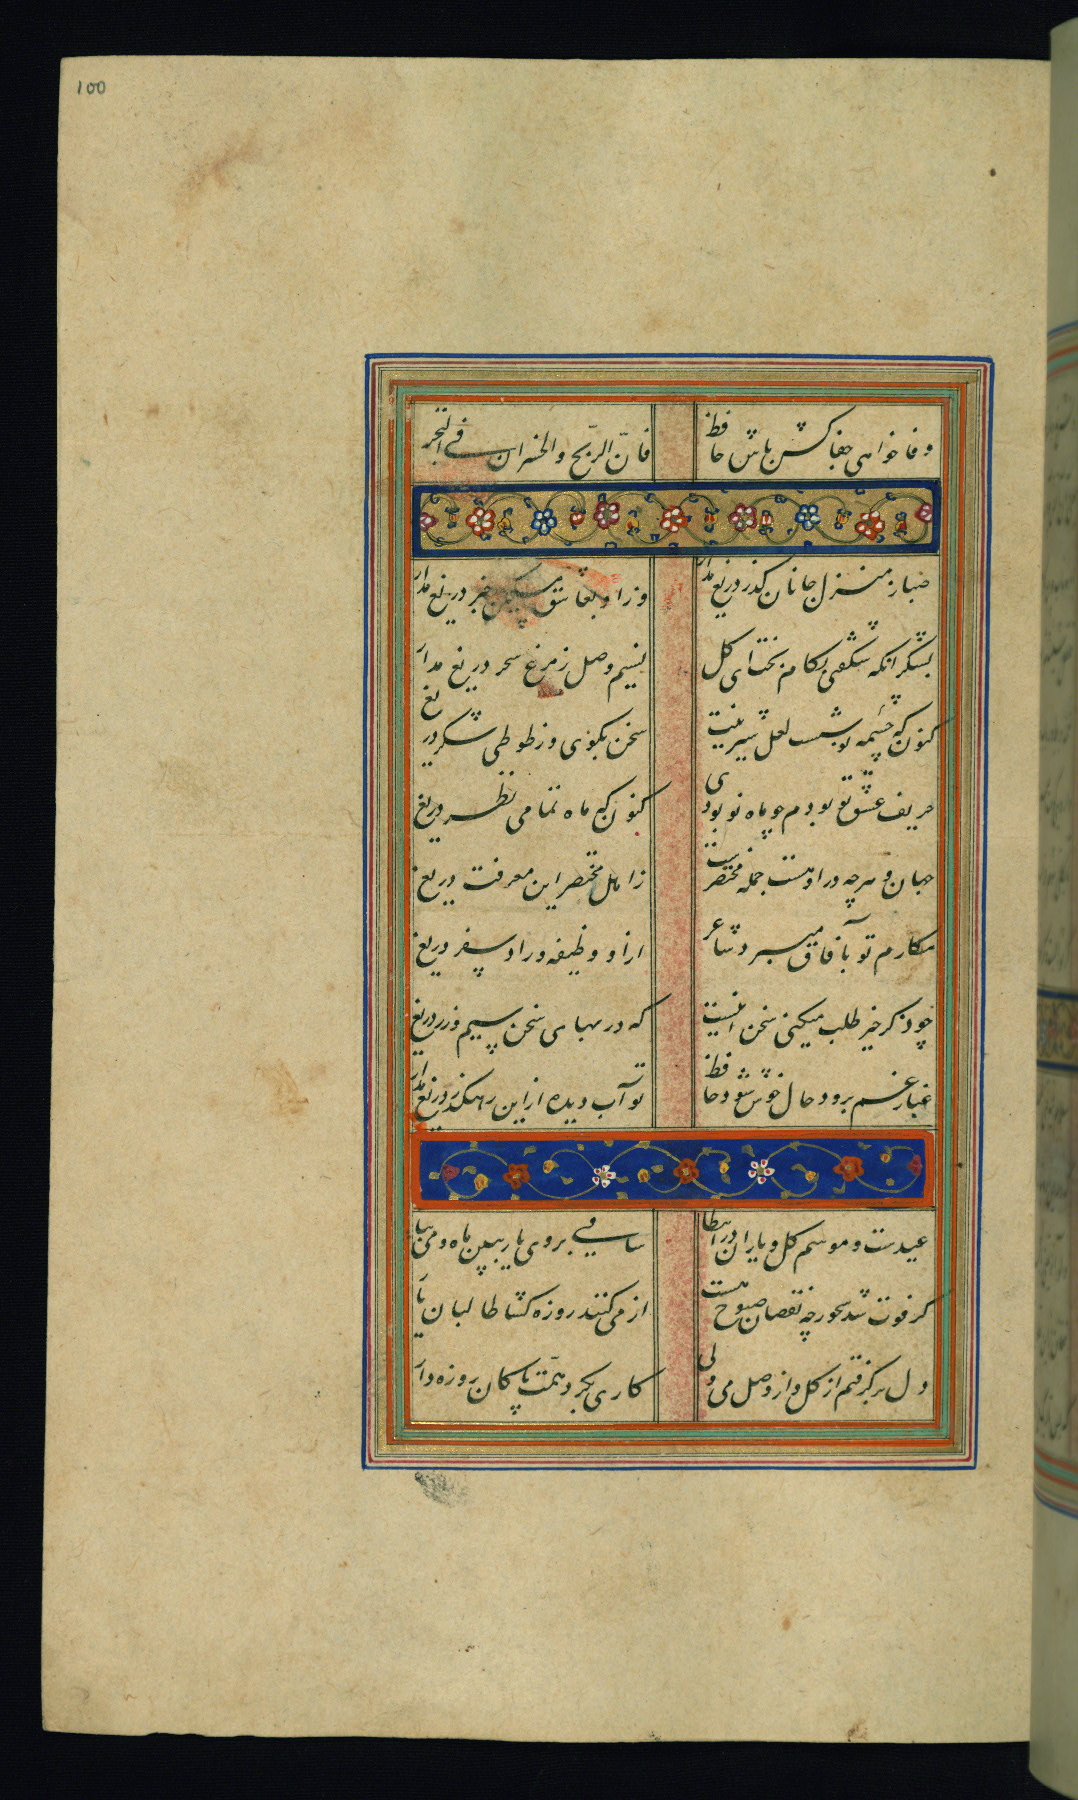 100
وفا خواهی جفاکش باش حافظ
فانّ الربّح والخسران فی التجر
صبا ز منزل جانان گذر دریغ مدار
وزاو بعاشق مسکین خبر دریغ مدار
بشکر انکه شکفتی بکام بخت ای گل
نسیم وصل ز مرغ سحر دریغ مدار
کنون که چشمه نوشست لعل شیرینت
سخن بگوی و ز طوطی شکر دریغ
حریف عشق تو بودم چو ماه نو بودی
کنون که ماه تمامی نظر دریغ
جهان و هرچه در او هست جمله مختصرست
ز اهل مختصر این معرفت دریغ
مکارم تو بآفاق میبرد شاعر
ازاو وظیفه و زاد سفر دریغ
چو ذکر خیر طلب میکنی سخن اینست
که در بهای سخن سیم و زر دریغ
غبار غم برود حال خوش شود حافظ
تو آب دیده ازاین رهگذر دریغ مدار
عیدست و موسم گل و یاران در انتظار
ساقی بروی یار ببین ماه و می بیار
گر فوت شد سحور چه نقصان صبوح هست
از می کنند روزه گشا طالبان یار
دل برگرفتم از گل و از وصل می ولی
کاری بکرد همّت پاکان روزه دار